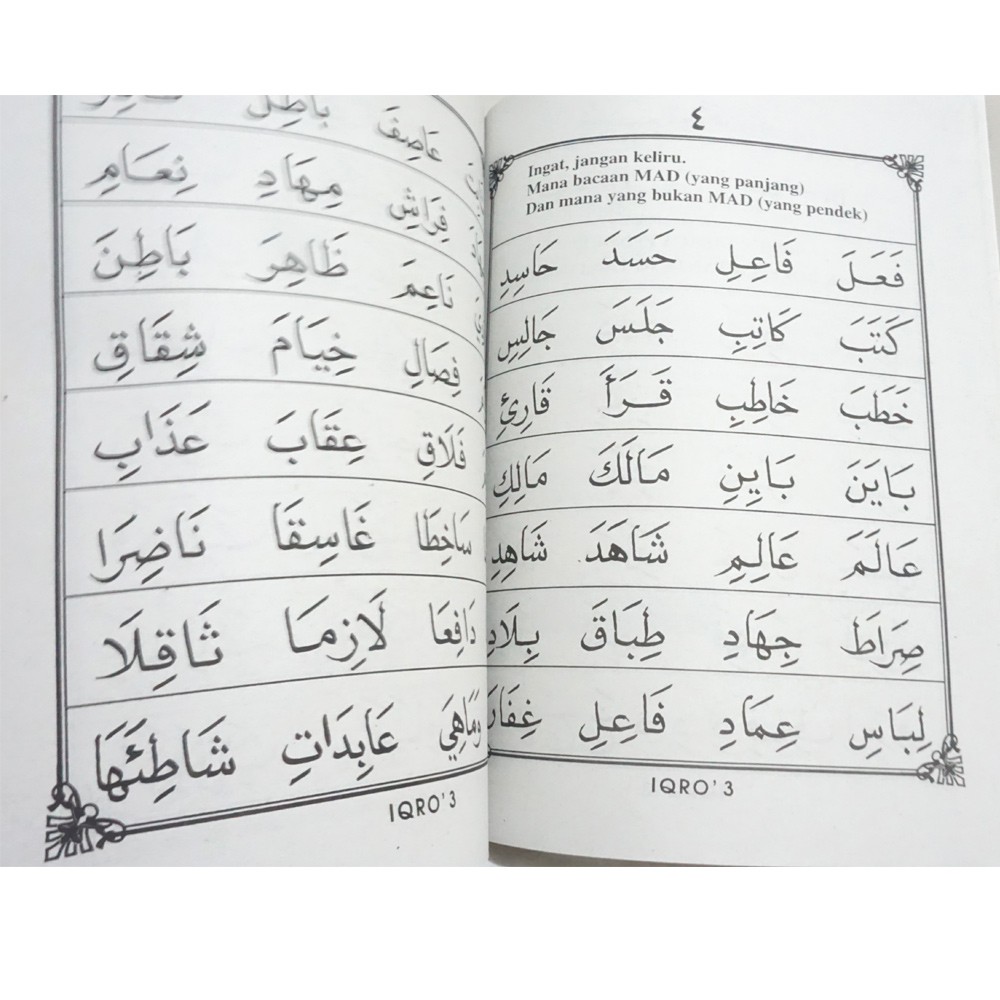 ٤
Ingat, jangan keliru.
Mana bacaan MAD (yang panjang)
Dan mana yang bukan MAD (yang pendek)
فَعَلَ فَاعِلِ حَسَدَ حَاسِدِ
كَتَبَ كَاتِبِ جَلَسَ جَالِسِ
خَطَبَ خَاطِبِ قَرَأَ قَارِئِ
بَايَنَ بَايِنِ مَالَكَ مَالِكِ
عَالَمَ عَالِمِ شَاهَدَ شَاهِدِ
صِرَاطَ جِهَادِ طِبَاقَ بِلَادِ
لِبَاسِ عِمَادِ فَاعِلِ غِفَارَ
IQRO' 3
عَاصِفَ بَاطِلَ
فِرَاشِ مِهَادِ نِعَامِ
نَاعِمَ ظَاهِرَ بَاطِنَ
فِصَالِ خِيَامَ شِقَاقِ
فَلَاقِ عِقَابَ عَذَابِ
سَاخِطَا غَاسِقَا نَاضِرَا
دَافِعَا لَازِمَا ثَاقِلَا
وَمَاهِيَ عَابِدَاتِ شَاطِئَهَا
IQRO' 3